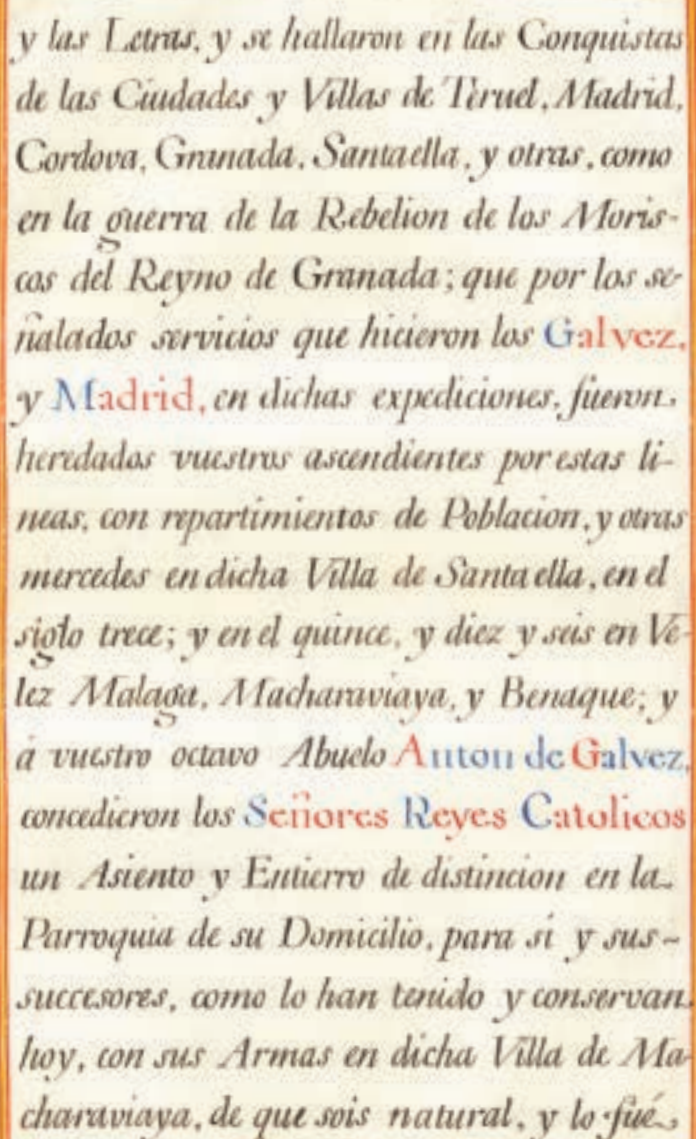 y las Letras, y se hallaron en las Conquistas
de las Ciudades y Villas de Teruel, Madrid,
Cordova, Granada, Santaella, y otras, como
en la guerra de la Rebelion de los Moris-
cos del Reyno de Granada; que por los se-
ñalados servicios que hicieron los Galvez,
y Madrid, en dichas expediciones, fueron
heredados vuestros ascendientes por estas li-
neas, con repartimientos de Poblacion, y otras
mercedes en dicha Villa de Santaella, en el
siglo trece; y en el quince, y diez y seis en Ve-
lez Malaga, Macharaviaya, y Benaque; y
á vuestro octavo Abuelo Anton de Galvez,
concedieron los Señores Reyes Catolicos
un Asiento y Entierro de distincion en la
Parroquia de su Domicilio, para sí y sus-
succesores, como lo han tenido y conservan
hoy, con sus Armas en dicha Villa de Ma-
charaviaya, de que sois natural, y lo fué